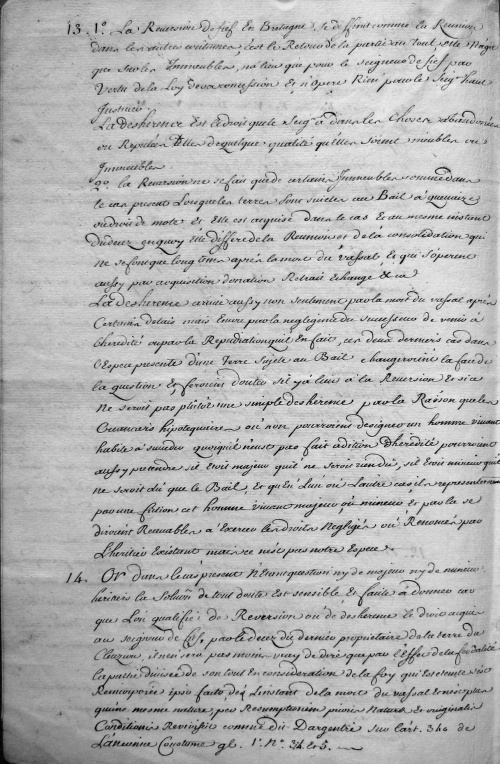 13. 1° La Reversion de fief En Bretagne, se definit comme la Reunion
dans les autres coutumes, c'est le Retour de la partie au tout, elle n'agit
que sur les Immeubles, na lieu que pour le seigneur de fief par
Vertu de la Loy de sa concession et n'opere Rien pour le Seigr haut
Justicier
La desherence est le droit que le Seigr a dans les choses abandonnées
ou Reputées telles de quelque qualité qu'elles soient meubles ou
Immeubles
2° la Reversion ne se fait que de certains Immeubles comme dans
le cas present Lorsque les terres sont sujetes au Bail à quevaize
ou droit de mote et Elle est acquise dans le cas et au mesme instant
du decez en quoy elle differe de la Reunion et de la consolidation qui
ne se font que long tems après la mort du vassal et qui s'operent
aussy par acquisition donation Retrait Echange &ca
La desherence arrive aussy non seulement par la mort du vassal après
Certains delais mais Encore par la negligence du successeur de venir à
l'heredité ou par la Repudiation qu'il en fait, ces deux derniers cas dans
l'Espece presente d'une terre sujete au Bail changeroient la face de
la question et feroient douter s'il y a lieu à la Reversion et si ce
ne seroit pas plutôt une simple desherence par la Raison que les
Creanciers hipotequaires ou non pourroient designer un homme vivant
habile à succeder quoiqu'il n'eust pas fait adition d'heredité pourroient
aussy pretendre s'il Etoit majeur qu'il ne seroit rendu, s'il Etoit mineur qu'il
ne seroit dû que le Bail, et qu'en l'un ou l'autre cas ils representeroient
par une fiction cet homme vivant majeur, ou mineur et par la se
diroient Recevables à Exercer les droits Negligés ou Renoncés par
L'heritier Existant mais ce n'est pas notre Espece.
14. Or dans le cas present N'Etant question ny de majeur ny de mineur
heritiers la Solution de tout doute est sensible, et facile à donner car
que l'on qualifie de Reversion ou de desherence le droit acquis
au seigneur de fief par le decez du dernier proprietaire de la terre du
Cleuziou, il n'en sera pas moins vray de dire que par l'Effet de la feodalité
la partie divisée de son tout en consideration de la foy qui est eteinte s'est
Reincorporée ipso facto, dès L'instant de la mort du vassal et n'est plus
qu'une mesme nature, per Resumptionem prioris Naturæ et originalis
Conditionis Revivisit comme dit Dargentré sur l'art. 340 de
L'ancienne Coustume gl. 1a. N° 34 et 5.